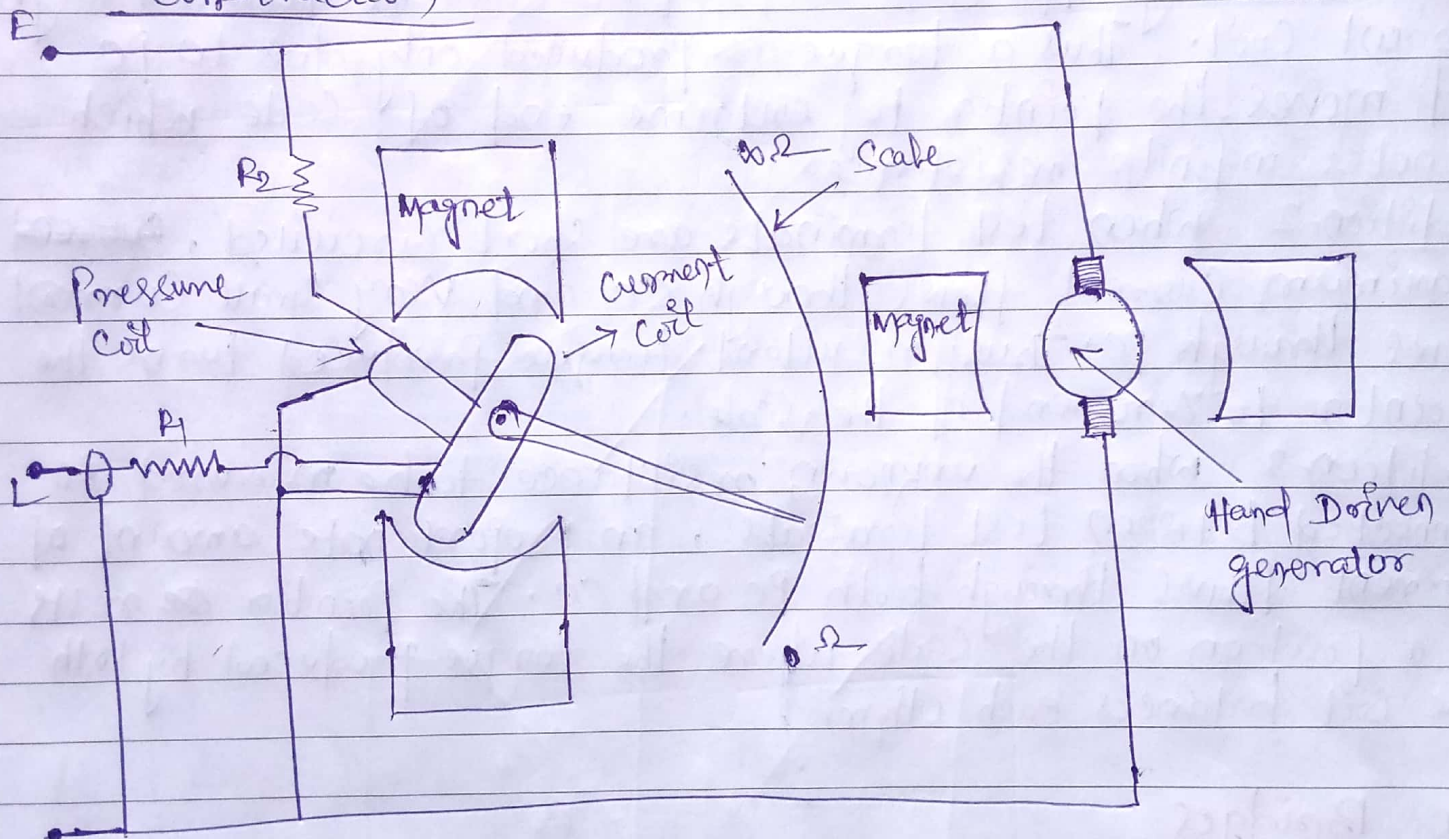 E
R2
Magnet
∞Ω
Scale
Pressure
Coil
Current
Coil
Magnet
R1
L
Hand Driven
generator
Ω